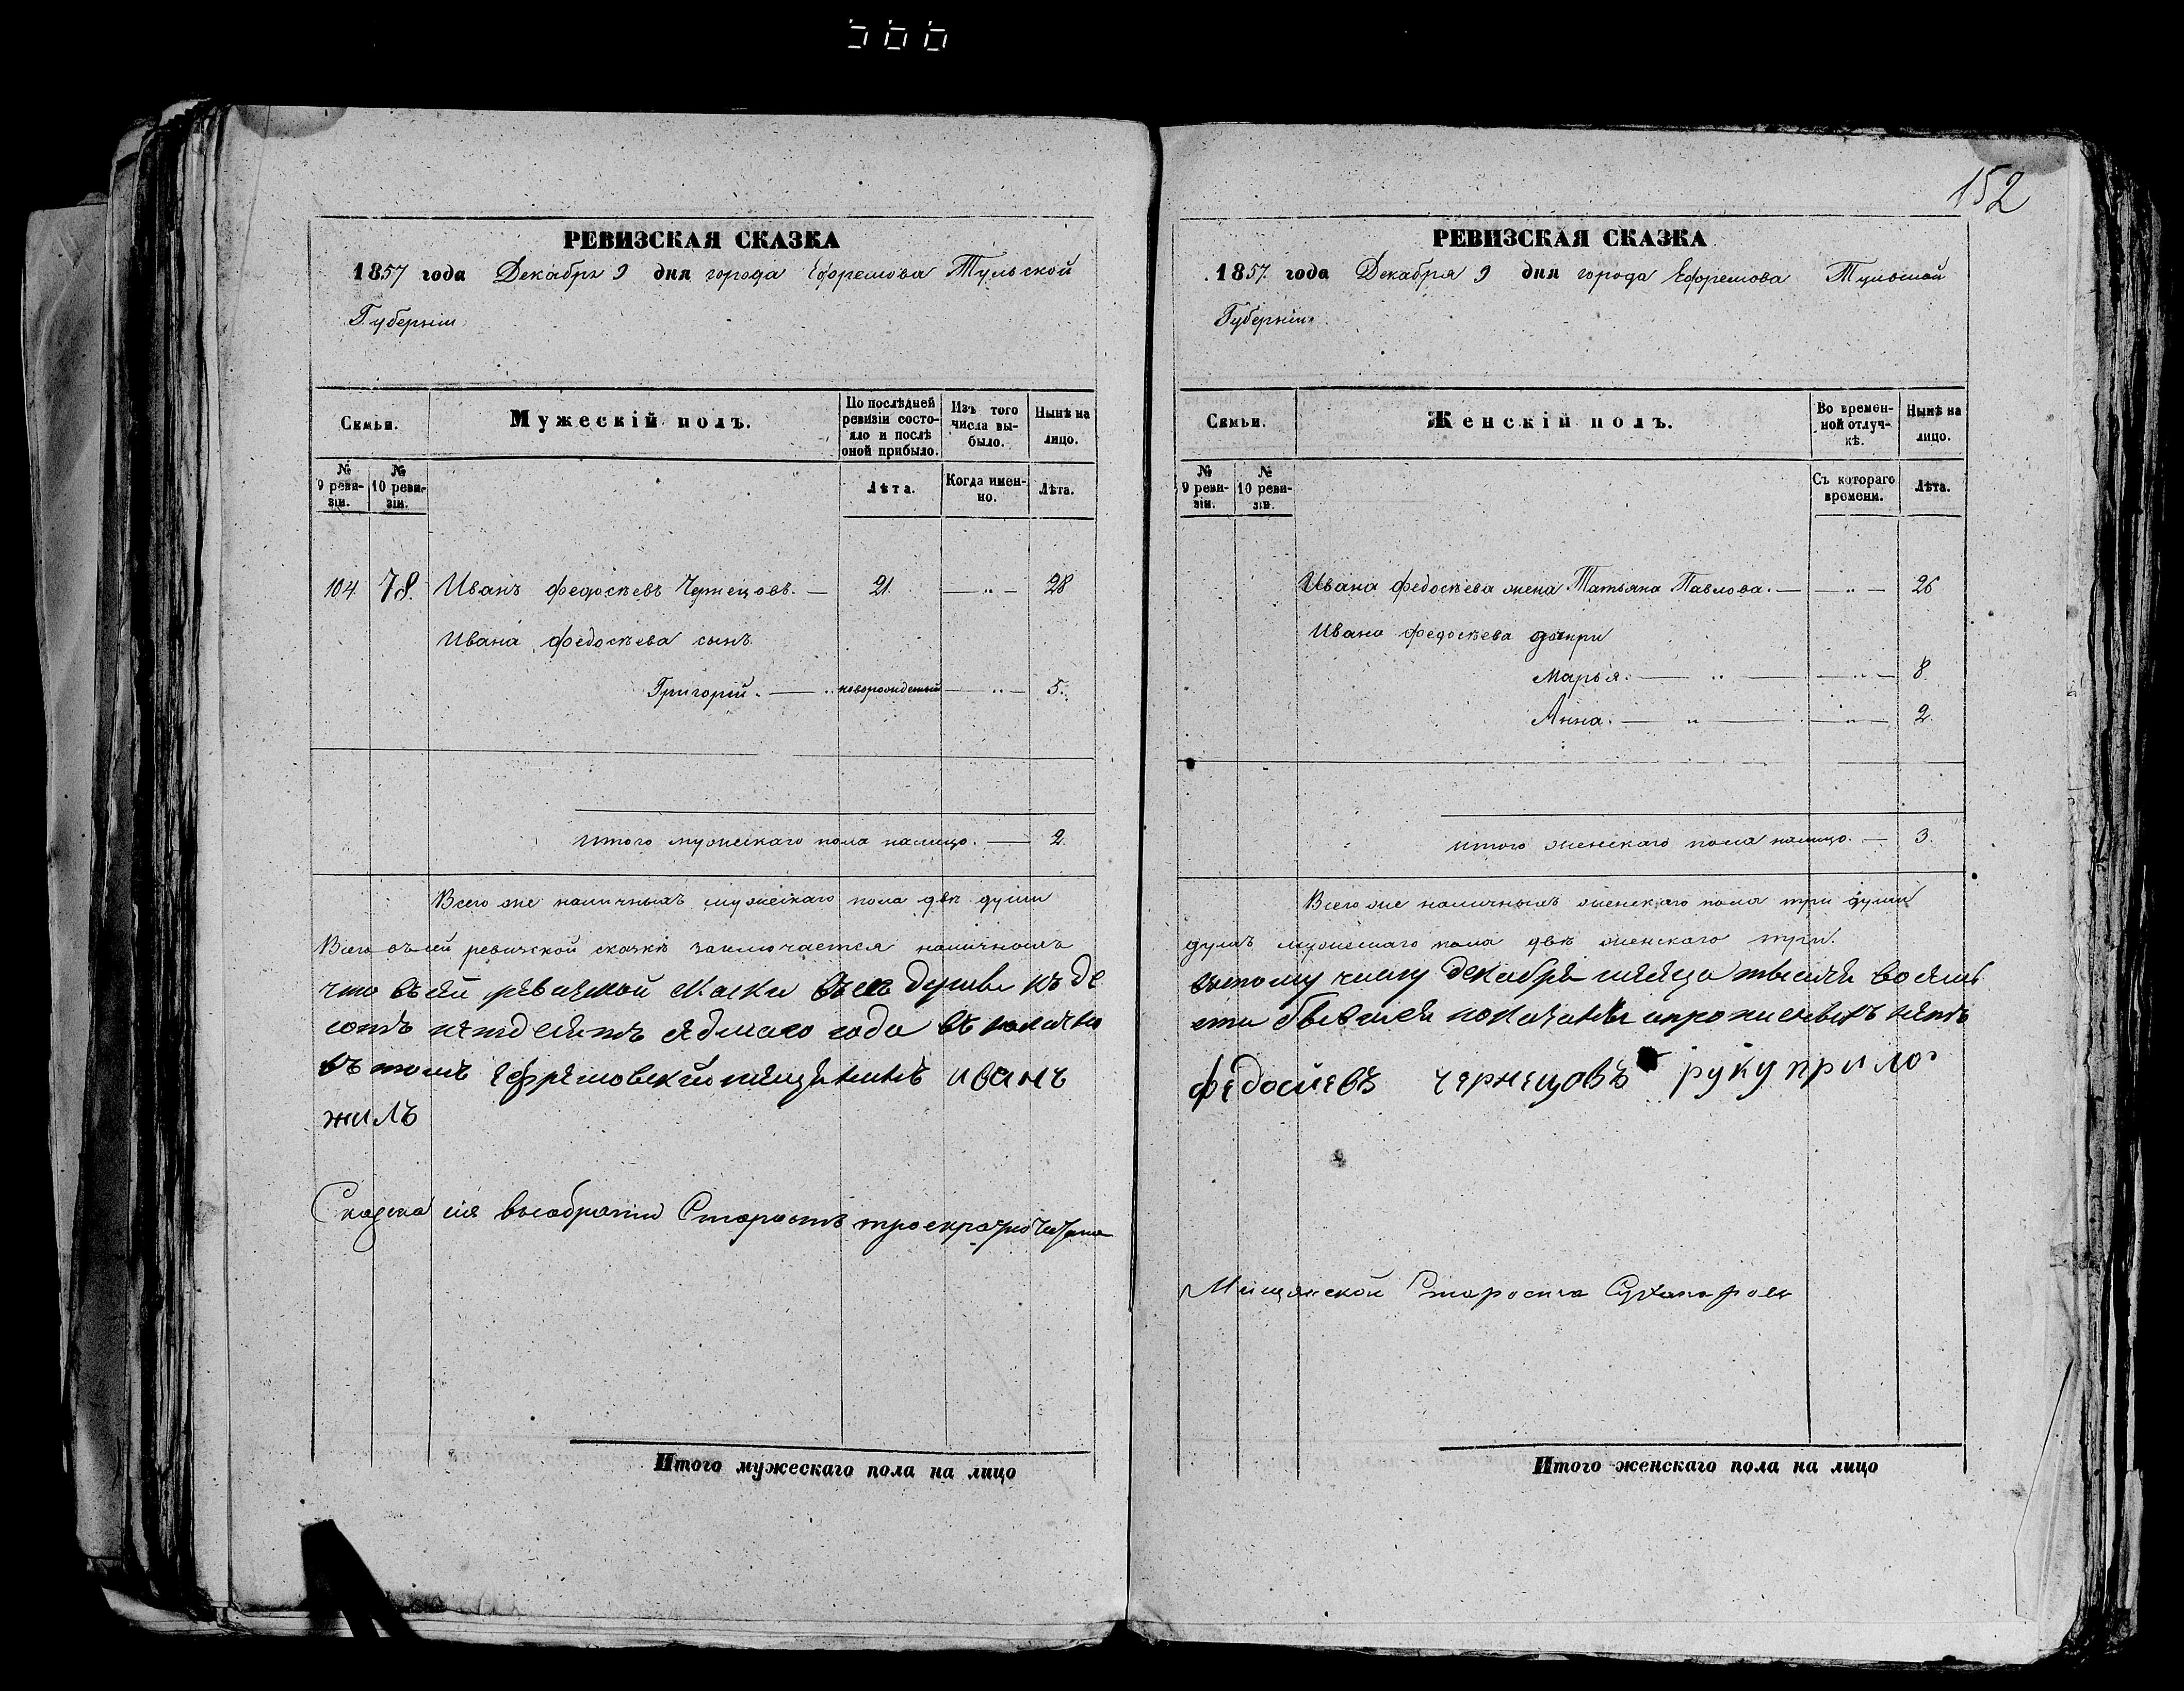 152
РЕВИЗСКАЯ СКАЗКА
1857 года Декабря 9 дня города Ефремова Тульской
Губерніи
Семьи.
Мужескій полъ.
По послѣдней ревизіи состояло и послѣ оной прибыло.
Изъ того числа выбыло.
Нынѣ на лицо.
№ 9 ревизіи.
№ 10 ревизіи.
Лѣта.
Когда именно.
Лѣта.
104. 78. Иванъ Федосѣевъ Чернецовъ. — 21. — „ — 28
Ивана Федосѣева сынъ
Григорій. — „ новорожденный — „ — 5.
Итого мужескаго пола налицо. — 2.
Всего же наличныхъ мужескаго пола двѣ души
Всего въ сей ревизской сказкѣ заключается наличныхъ
что въ сей ревизской скаски всех душъ къ де
сотъ пятдесятъ седмаго года
въ томъ Ефремовскій мещанинъ иванъ
жилъ
Сказка сія выобрати Старостѣ троекратно читана
Итого мужескаго пола на лицо
РЕВИЗСКАЯ СКАЗКА
1857 года Декабря 9 дня города Ефремова Тульской
Губерніи
Семьи.
Женскій полъ.
Во временной отлучкѣ.
Нынѣ на лицо.
№ 9 ревизіи.
№ 10 ревизіи.
Съ котораго времени.
Лѣта.
Ивана Федосѣева жена Татьяна Павлова. — — „ — 26
Ивана Федосѣева дочери
Марья. — „ — — „ — 8.
Анна. — „ — — „ — 2.
Итого женскаго пола налицо. — 3.
Всего же наличныхъ женскаго пола три души
душъ мужескаго пола двѣ женскаго три.
вятому числу декабря месяца тысяча восемь
показаны нетъ
федосиевъ чернецовъ руку прило
Мещанской Староста
Итого женскаго пола на лицо